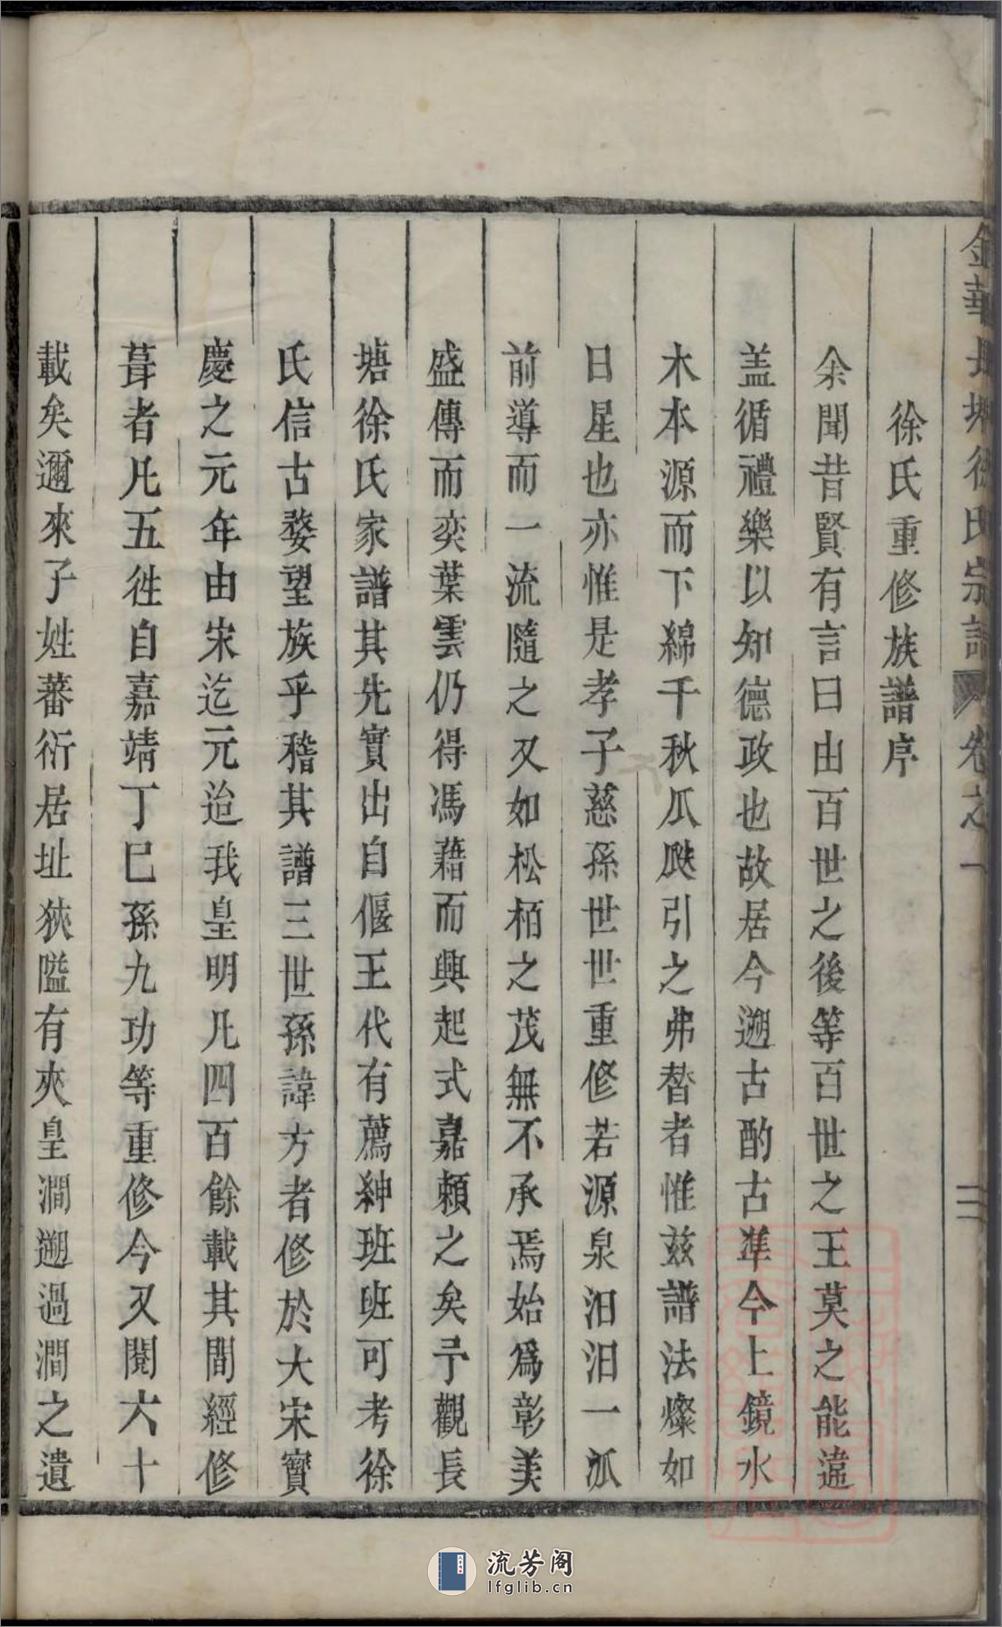 金華長塘徐氏宗譜 卷之一 二
徐氏重修族譜序
余聞昔賢有言曰由百世之後等百世之王莫之能違
盖循禮樂以知德政也故居今遡古酌古凖今上鏡水
木本源而下綿千秋瓜瓞引之弗替者惟兹譜法燦如
日星也亦惟是孝子慈孫世世重修若源泉汩汩一派
前導而一流隨之又如松栢之茂無不承焉始爲彰美
盛傳而奕葉雲仍得馮藉而興起式嘉頼之矣予觀長
塘徐氏家譜其先實出自偃王代有薦紳班班可考徐
氏信古婺望族乎稽其譜三世孫諱方者修於大宋寳
慶之元年由宋迄元迨我皇明凡四百餘載其間經修
葺者凡五徃自嘉靖丁巳孫九功等重修今又閱六十
載矣邇來子姓蕃衍居址狹隘有夾皇澗遡過澗之遺
流芳阁
lfglib.cn